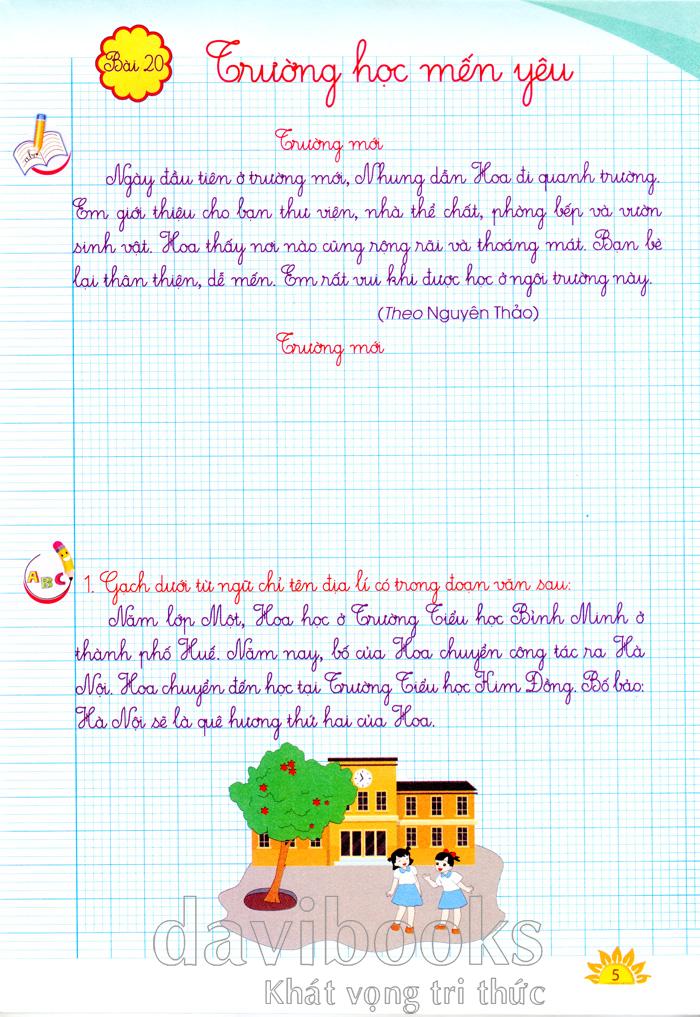 Bài 20
Trường học mến yêu
Trường mới
Ngày đầu tiên ở trường mới, Nhung dẫn Hoa đi quanh trường.
Em giới thiệu cho bạn thư viện, nhà thể chất, phòng bếp và vườn
sinh vật. Hoa thấy nơi nào cũng rộng rãi và thoáng mát. Bạn bè
lại thân thiện, dễ mến. Em rất vui khi được học ở ngôi trường này.
(Theo Nguyên Thảo)
Trường mới
ABC
1. Gạch dưới từ ngữ chỉ tên địa lí có trong đoạn văn sau:
Năm lớp Một, Hoa học ở Trường Tiểu học Bình Minh ở
thành phố Huế. Năm nay, bố của Hoa chuyển công tác ra Hà
Nội. Hoa chuyển đến học tại Trường Tiểu học Kim Đồng. Bố bảo:
Hà Nội sẽ là quê hương thứ hai của Hoa.
davibooks
Khát vọng tri thức
5